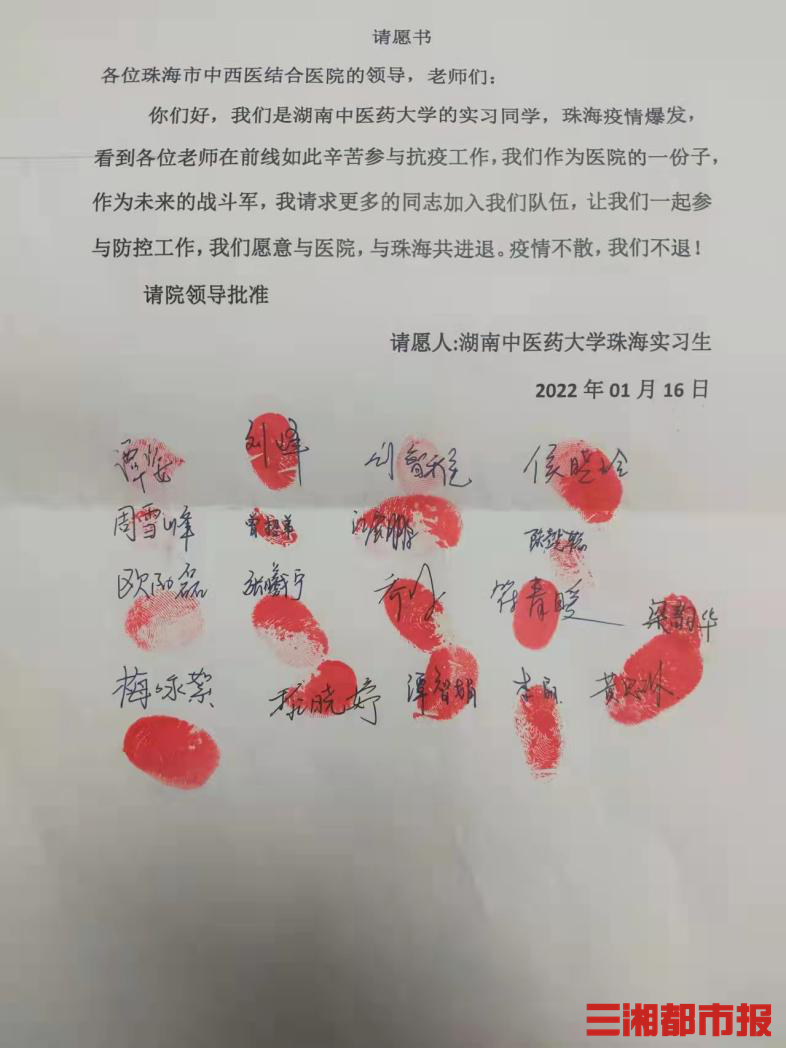 请愿书
各位珠海市中西医结合医院的领导，老师们：
你们好，我们是湖南中医药大学的实习同学，珠海疫情爆发，
看到各位老师在前线如此辛苦参与抗疫工作，我们作为医院的一份子，
作为未来的战斗军，我请求更多的同志加入我们队伍，让我们一起参
与防控工作，我们愿意与医院，与珠海共进退。疫情不散，我们不退！
请院领导批准
请愿人:湖南中医药大学珠海实习生
2022 年 01 月 16 日
刘峰 侯晓玲
周雪峰
欧阳磊 符青暖
梅咏絮 程晓婷 谭智娟 李丽
三湘都市报